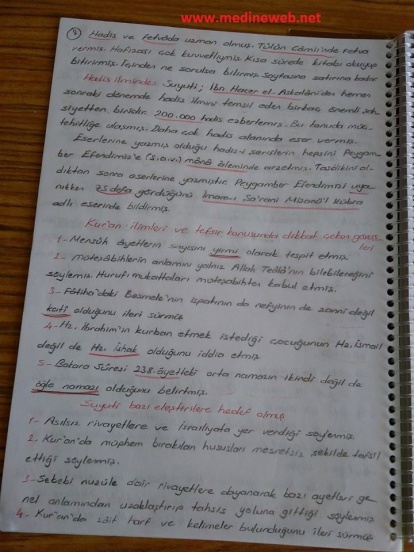 www.medineweb.net
Hadis ve fetvada uzman olmuş. Tolun Camii'nde fetva
vermiş. Hafızası çok kuvvetliymiş. Kısa sürede kitabı okuyup
bitirirmiş. İçinden ne sorulsa bilirmiş. Sayfasına satırına kadar
Hadis ilminde; Suyuti; İbn Hacer el-Askalani'den hemen
sonraki dönemde hadis ilmini temsil eden birkaç önemli şah
siyetten biridir. 200.000 hadis ezberlemiş. Bu konuda müc
tehitliğe ulaşmış. Daha çok hadis alanında eser vermiş.
Eserlerine yazmış olduğu hadis-i şeriflerin hepsini Peygam
ber Efendimiz'e (s.a.v.) mânâ âleminde arzetmiş. Tasdikini al
dıktan sonra eserlerine yazmıştır. Peygamber Efendimizi uya
nıkken 75 defa gördüğünü İmam-ı Şa'rani Mizanü'l Kübra
adlı eserinde bildirmiş.
Kur'an ilimleri ve tefsir konusunda dikkat çeken görüş
leri
1- Mensûh âyetlerin sayısını yirmi olarak tespit etmiş.
2- Müteşâbihlerin anlamını yalnız Allah Teâlâ'nın bilebileceğini
söylemiş. Hurufi mukattaları müteşabihten kabul etmiş.
3- Fâtiha'daki Besmele'nin ispatının da nefyinin de zanni değil
kat'î olduğunu ileri sürmüş
4- Hz. İbrahim'in kurban etmek istediği çocuğunun Hz. İsmail
değil de Hz. İshak olduğunu iddia etmiş
5- Bakara Sûresi 238. âyetteki orta namazın ikindi değil de
öğle namazı olduğunu belirtmiş.
Suyuti bazı eleştirilere hedef olmuş
1- Asılsız rivayetlere ve israiliyata yer verdiği söylenmiş
2- Kur'an'da müphem bırakılan hususları mesnetsiz şekilde tafsil
ettiği söylenmiş.
3- Sebebi nuzûle dair rivayetlere dayanarak bazı ayetleri ge
nel anlamından uzaklaştırıp tahsis yoluna gittiği söylenmiş
4- Kur'an'da zâit harf ve kelimeler bulunduğunu ileri sürmüş